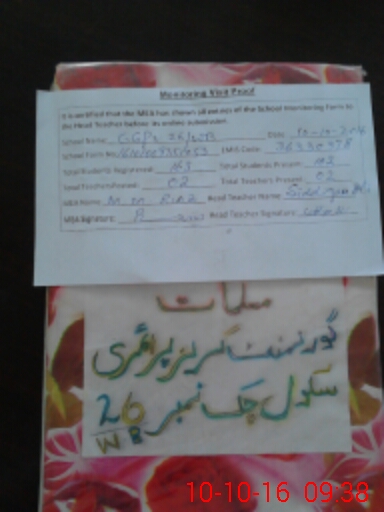 Monitoring Visit Proof
It is certified that the MEA has shown all entries of the School Monitoring Form to
the Head Teacher before its online submission.
School Name: GGPS 26/WB Date: 10-10-2016
School Form No: EMIS Code: 36330978
Total Students Registered: 163 Total Students Present: 102
Total Teachers Posted: 02 Total Teachers Present: 02
MEA Name: M. M. Riaz Head Teacher Name:
MEA Signature: Head Teacher Signature:
گورنمنٹ گرلز پرائمری
سکول چک نمبر 26
WB
10-10-16 09:38